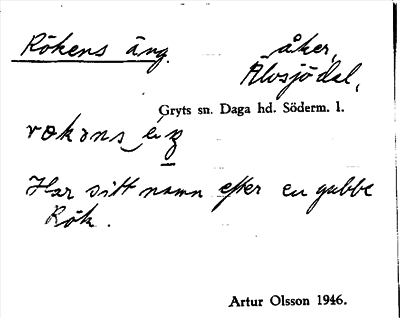 Rökens äng. åker,
Älvsjödal,
Gryts sn. Daga hd. Söderm. l.
Har sitt namn efter en gubbe
Rök.
Artur Olsson 1946.